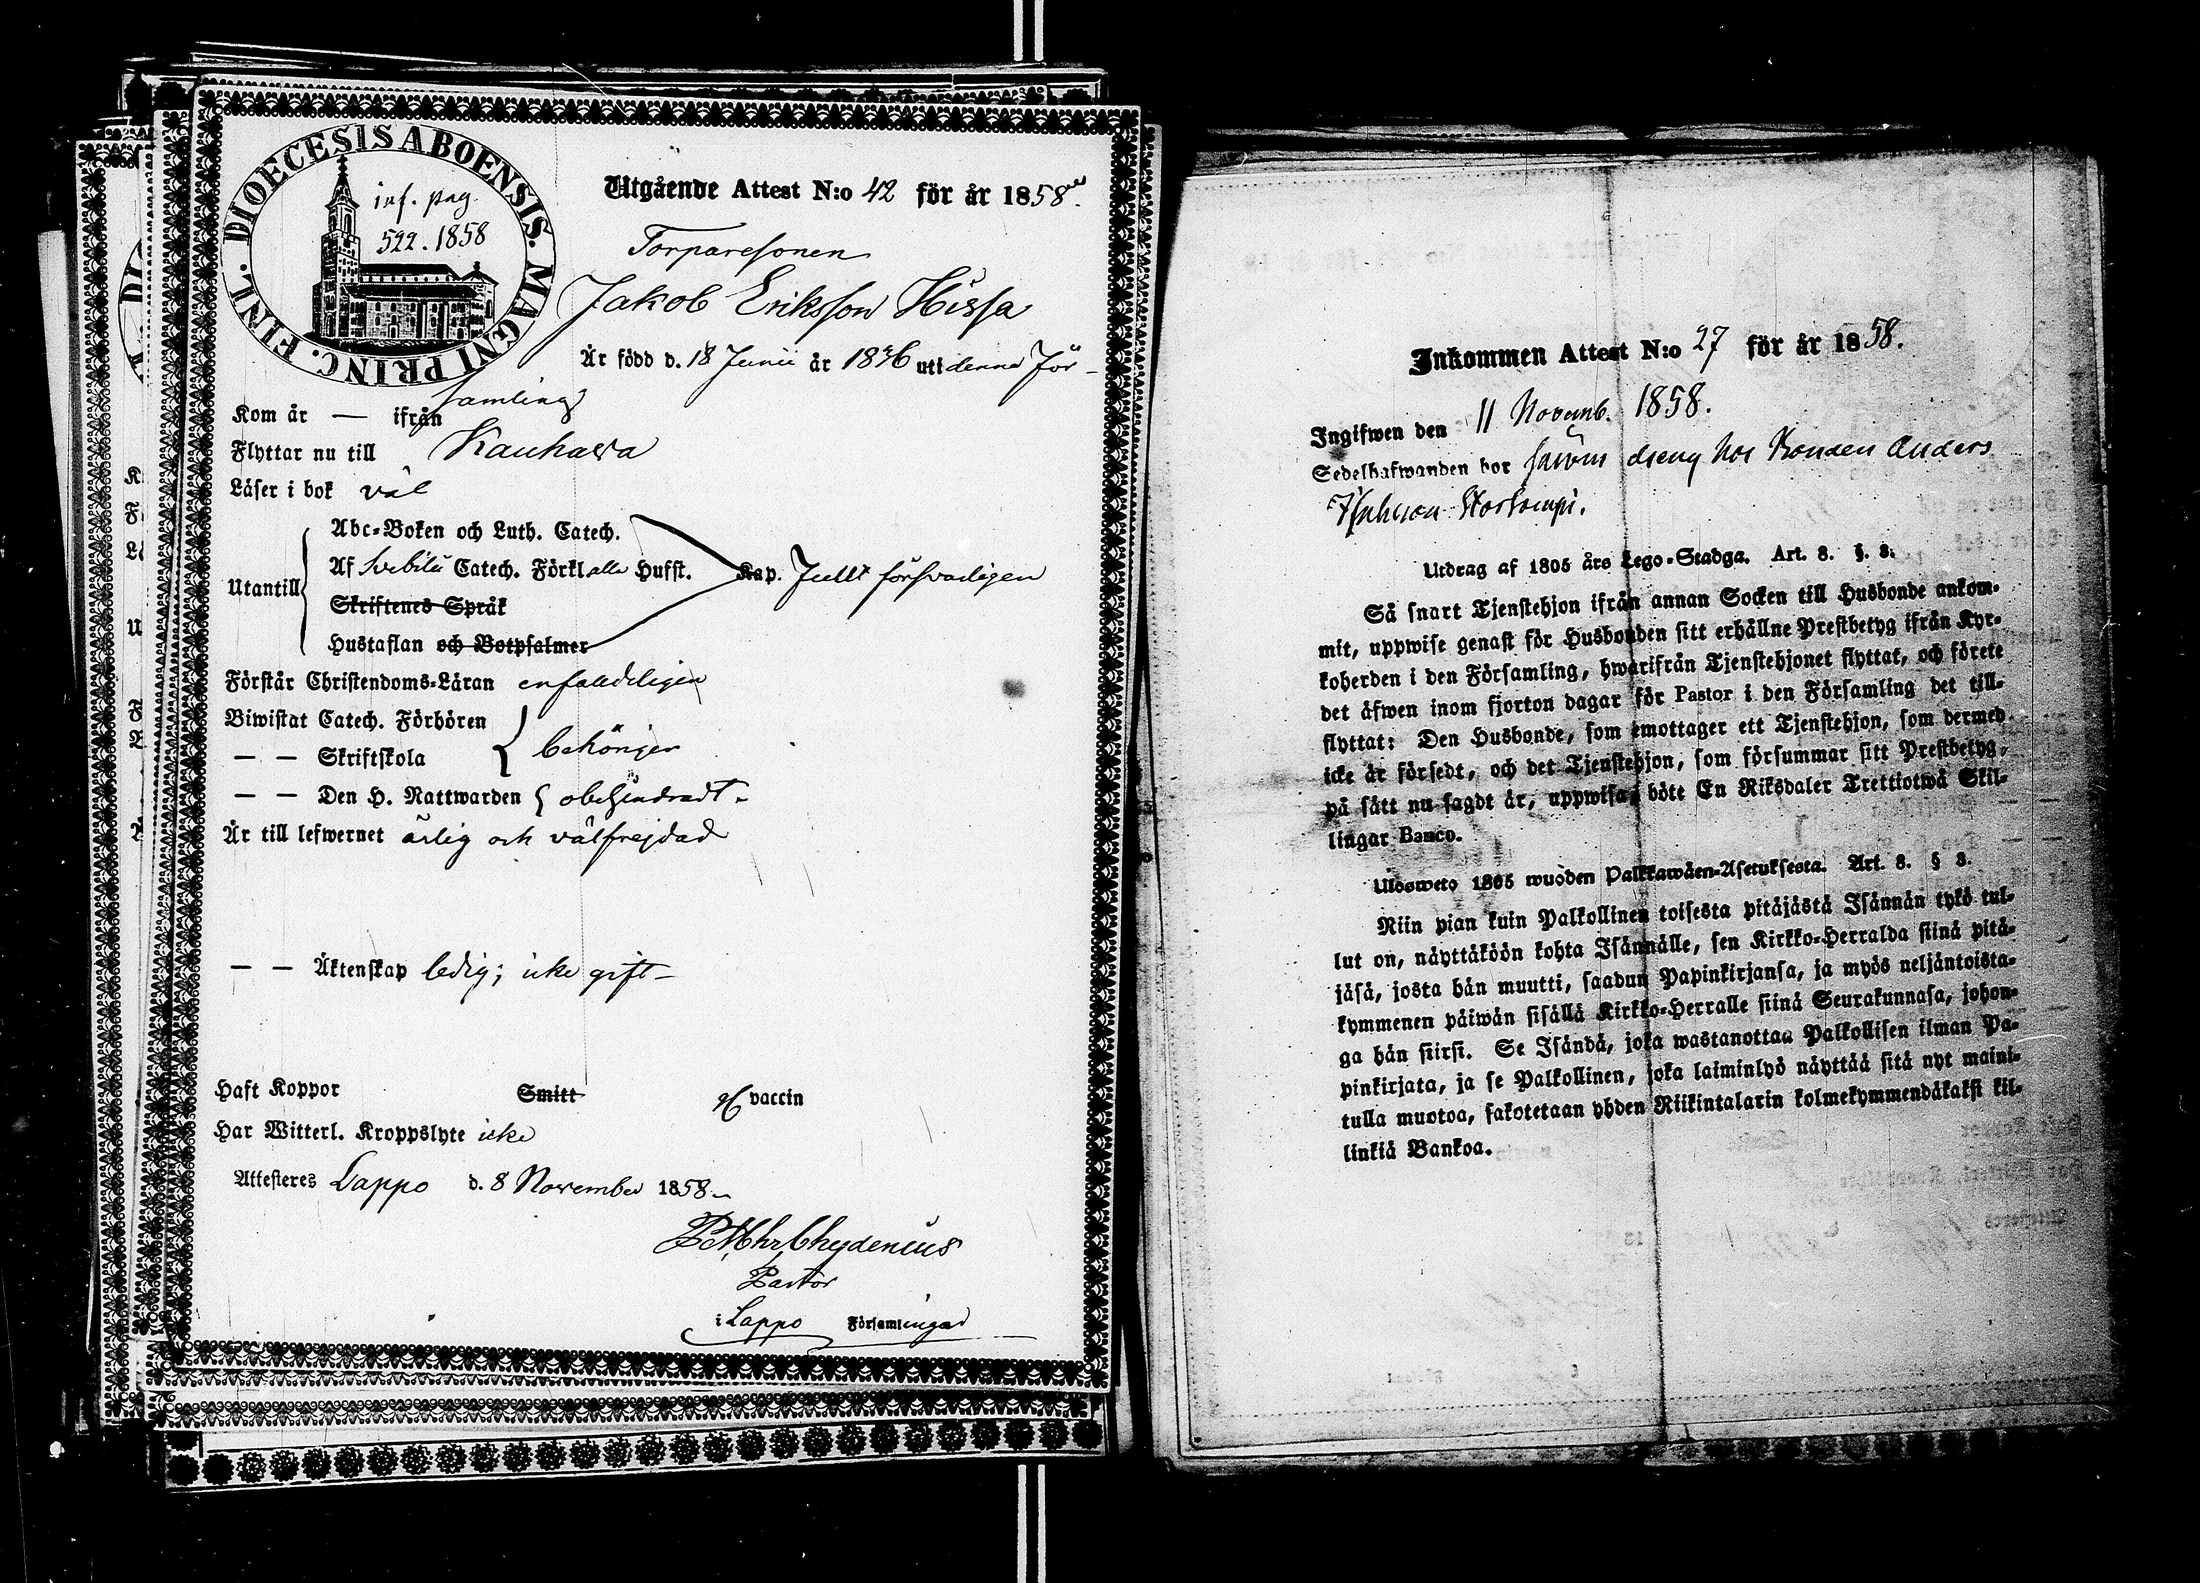 DIOECESIS ABOENSIS. MAGNI PRINC. FINL.
inf. pag.
522. 1858
Utgående Attest N:o 42 för år 1858.
Torparesonen
Jakob Eriksson Hissa
Är född d. 18 Junii år 1836 uti denna För-
samling
Kom år — ifrån
Flyttar nu till Kauhava
Läser i bok väl
Utantill
Abc-Boken och Luth. Catech.
Af Svebilii Catech. Förkl alla Hufst.
Skriftenes Språk
Hustaflan och Botpsalmer
Kap. försvarligen
Förstår Christendoms-Läran enfaldeligen
Biwistat Catech. Förhören
— — Skriftskola
behörigen
— — Den H. Nattwarden obehindradt.
Är till lefwernet ärlig och välfrejdad
— — Äktenskap ledig; icke gift—
Haft Koppor Smitt vaccin
Har Witterl. Kroppslyte icke
Attesteras Lappo d. 8 November 1858.
Chydenius
Pastor
i Lappo Församlingar
Inkommen Attest N:o 27 för år 1858.
Ingifwen den 11 Novemb. 1858.
Sedelhafwanden bor såsom dreng hos Bonden Anders
Utdrag af 1805 års Lego-Stadga. Art. 8. §. 3.
Så snart Tjenstehjon ifrån annan Socken till Husbonde ankom-
mit, uppwise genast för Husbonden sitt erhållne Prestbetyg ifrån Kyr-
koherden i den Församling, hwarifrån Tjenstehjonet flyttat, och förete
det äfwen inom fjorton dagar för Pastor i den Församling det till-
flyttat: Den Husbonde, som emottager ett Tjenstehjon, som dermed
icke är försedt, och det Tjenstehjon, som försummar sitt Prestbetyg,
på sätt nu sagdt är, uppwisa, böte En Riksdaler Trettiotwå Skil-
lingar Banco.
Ulosweto 1805 wuoden Palkkawäen-Asetuksesta. Art. 8. § 3.
Niin pian kuin Palkollinen toisesta pitäjästä Isännän tykö tul-
lut on, näyttäköön kohta Isännälle, sen Kirkko-Herralda siinä pitä-
jäsä, josta hän muutti, saadun Papinkirjansa, ja myös neljäntoista-
kymmenen päiwän sisällä Kirkko-Herralle siinä Seurakunnasa, johon-
ga hän siirsi. Se Isändä, joka wastanottaa Palkollisen ilman Pa-
pinkirjata, ja se Palkollinen, joka laiminlyö näyttää sitä nyt maini-
tulla muotoa, sakotetaan yhden Riikintalarin kolmekymmendäkaksi kil-
linkiä Bankoa.